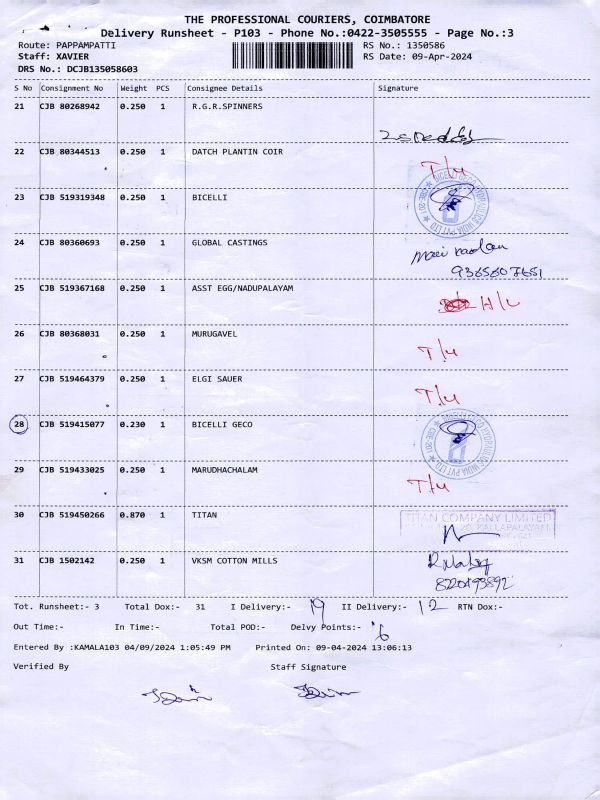 THE PROFESSIONAL COURIERS, COIMBATORE
Delivery Runsheet - P103 - Phone No.:0422-3505555 - Page No.:3
Route: PAPPAMPATTI RS No.: 1350586
Staff: XAVIER RS Date: 09-Apr-2024
DRS No.: DCJB135058603
S No Consignment No Weight PCS Consignee Details Signature
21 CJB 80268942 0.250 1 R.G.R.SPINNERS
22 CJB 80344513 0.250 1 DATCH PLANTIN COIR T/u
23 CJB 519319348 0.250 1 BICELLI
24 CJB 80360693 0.250 1 GLOBAL CASTINGS
25 CJB 519367168 0.250 1 ASST EGG/NADUPALAYAM H/L
26 CJB 80368031 0.250 1 MURUGAVEL T/u
27 CJB 519464379 0.250 1 ELGI SAUER T/u
28 CJB 519415077 0.230 1 BICELLI GECO
29 CJB 519433025 0.250 1 MARUDHACHALAM T/u
30 CJB 519450266 0.870 1 TITAN TITAN COMPANY LIMITED
31 CJB 1502142 0.250 1 VKSM COTTON MILLS
Tot. Runsheet:- 3 Total Dox:- 31 I Delivery:- 19 II Delivery:- 12 RTN Dox:-
Out Time:- In Time:- Total POD:- Delvy Points:- 6
Entered By :KAMALA103 04/09/2024 1:05:49 PM Printed On: 09-04-2024 13:06:13
Verified By Staff Signature